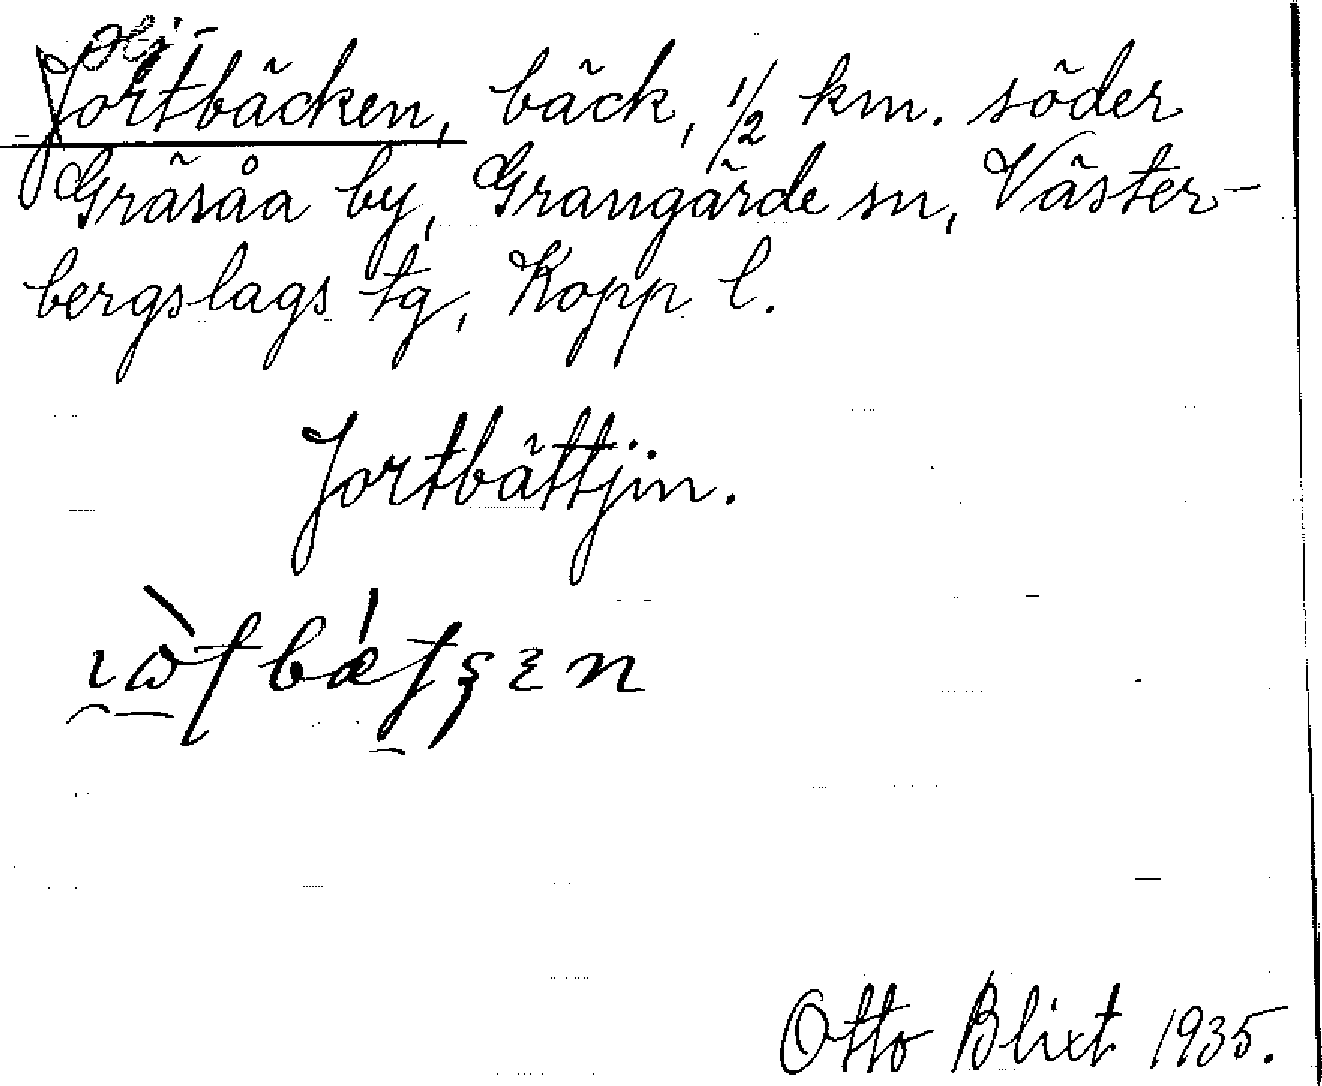 Hj-
Jortbäcken, bäck, 1/2 km. söder
Gräsåa by, Grangärde sn, Väster-
bergslags tg, Kopp l.
Jortbättjin.
Otto Blixt 1935.